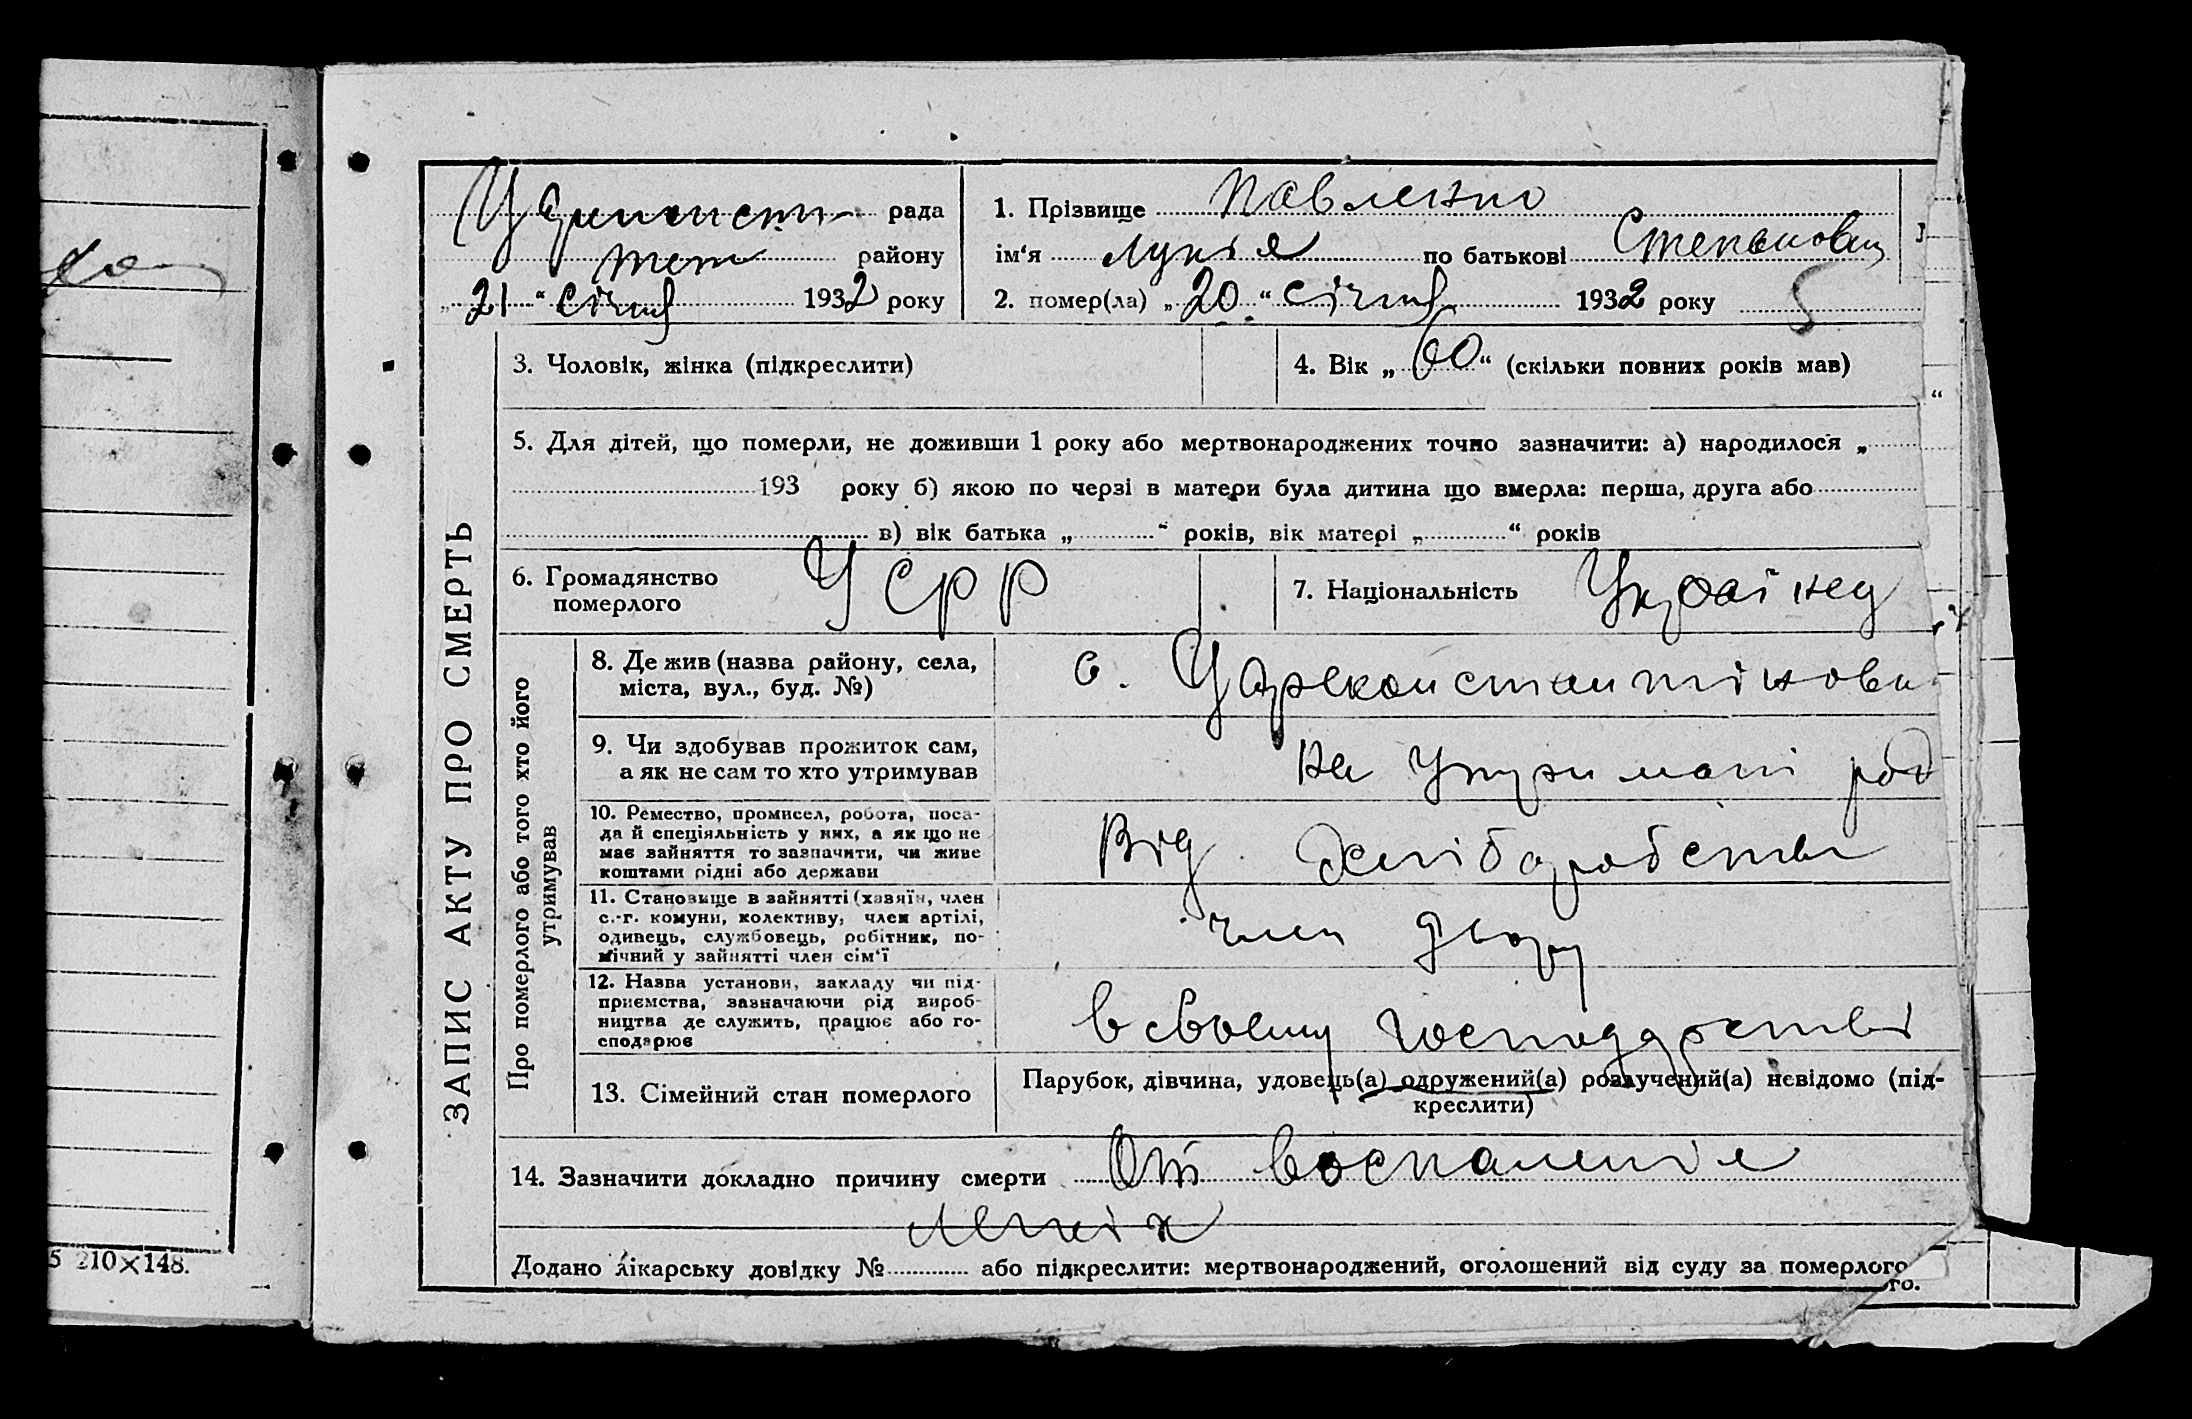 рада
района
„ 21 “ січня 1932 року
1. Прізвище Павленко
ім‘я Лукія по батькові Степанович
2. помер(ла) „ 20 “ січня 1932 року
3. Чоловік, жінка (підкреслити)
4. Вік „ 60 “ (скільки повних років мав)
5. Для дітей, що померли, не доживши 1 року або мертвонароджених точно зазначити: а) народилося „
193 року б) якою по черзі в матери була дитина що вмерла: перша, друга або
в) вік батька „ “ років, вік матері „ “ років
6. Громадянство
померлого
УСРР
7. Національність Українец
ЗАПИС АКТУ ПРО СМЕРТЬ
Про померлого або того хто його
утримував
8. Де жив (назва району, села,
міста, вул., буд. №)
с. Цареконстантіновка
9. Чи здобував прожиток сам,
а як не сам то хто утримував
на утримані
10. Ремество, промисел, робота, поса-
да й спеціяльність у них, а як що не
має зайняття то зазначити, чи живе
коштами рідні або держави
Від хліборобства
11. Становище в зайнятті (хазяїн, член
с.-г. комуни, колективу, член артілі,
одинець, службовець, робітник, по-
мічний у зайнятті член сім‘ї
член двору
12. Назва установи, закладу чи під-
приємства, зазначаючи рід вироб-
ництва де служить, працює або го-
сподарює
в своему господарстві
13. Сімейний стан померлого
Парубок, дівчина, удовець(а) одружений(а) розлучений(а) невідомо (під-
креслити)
14. Зазначити докладно причину смерти От воспаленія
легкіх
Додано лікарську довідку № або підкреслити: мертвонароджений, оголошений від суду за померлого
го.
5 210×148.